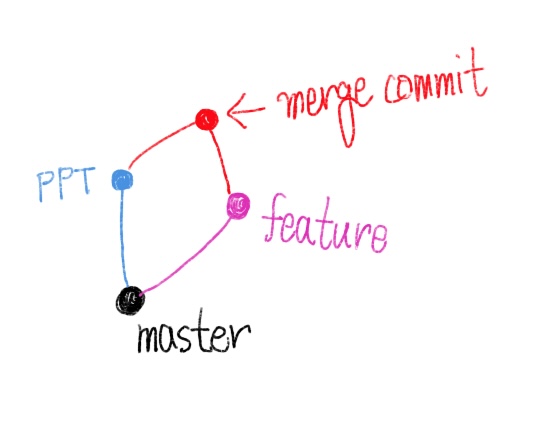 merge commit
PPT
feature
master